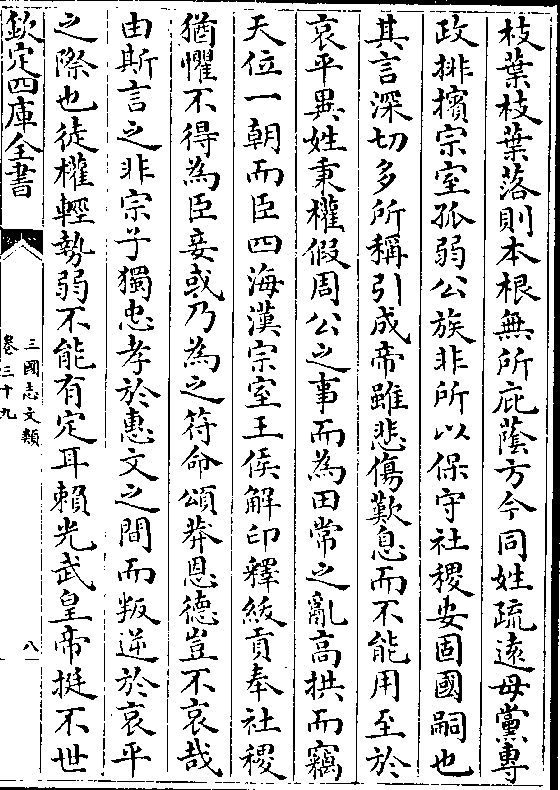 枝葉枝葉落則本根無所庇蔭方今同姓疏遠母黨專
政排擯宗室孤弱公族非所以保守社稷安固國嗣也
其言深切多所稱引成帝雖悲傷歎息而不能用至於
哀平異姓秉權假周公之事而為田常之亂高拱而竊
天位一朝而臣四海漢宗室王侯解印釋紱貢奉社稷
猶懼不得為臣妾或乃為之符命頌莽恩德豈不哀哉
由斯言之非宗子獨忠孝於惠文之間而叛逆於哀平
之際也徒權輕勢弱不能有定耳賴光武皇帝挺不世
欽定四庫全書
三國志文類
卷三十九
八